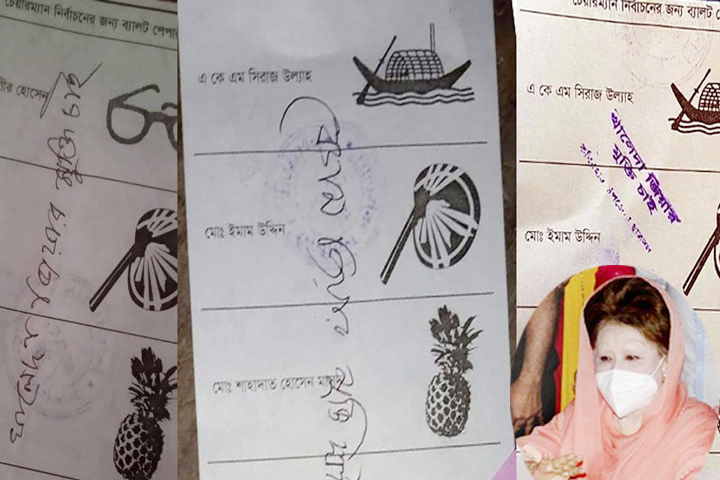 চেয়ারম্যান নির্বাচনের জন্য ব্যালট পেপার
হোসেন
খালেদা জিয়ার মুক্তি চাই
এ কে এম সিরাজ উল্যাহ
মোঃ ইমাম উদ্দিন
মোঃ শাহাদাত হোসেন
জিয়ার মুক্তি চাই
চেয়ারম্যান নির্বাচনের জন্য ব্যালট
এ কে এম সিরাজ উল্যাহ
খালেদা জিয়ার
মুক্তি চাই
মোঃ ইমাম উদ্দিন